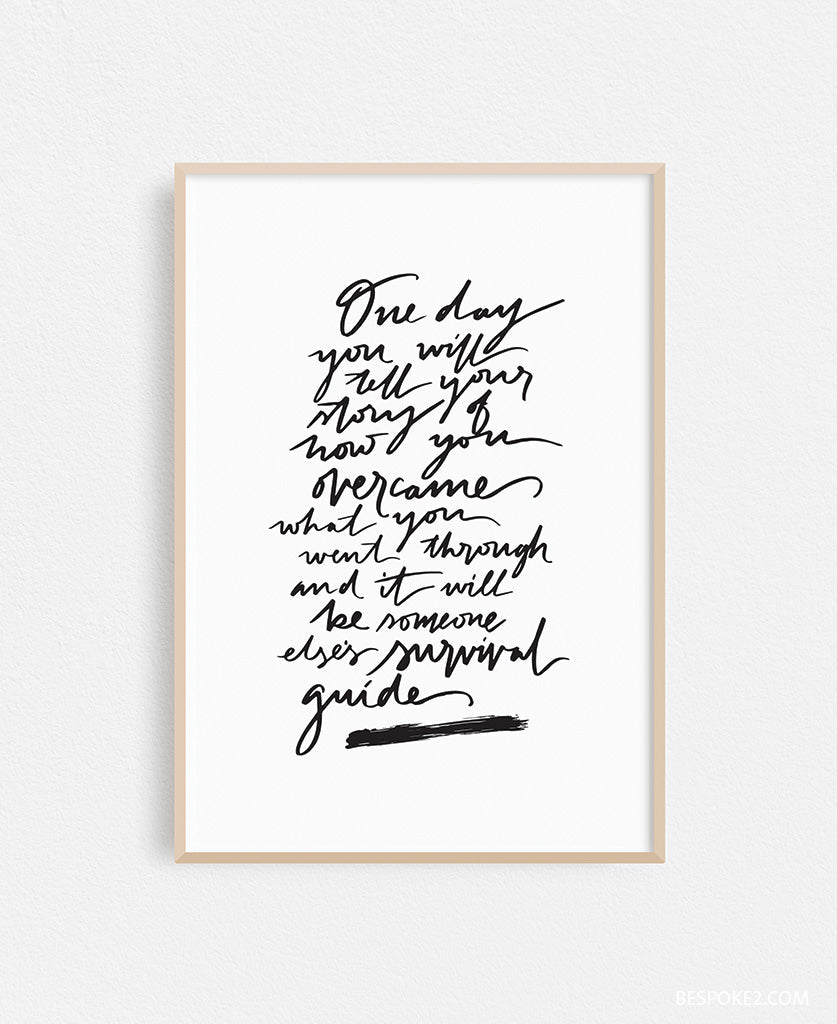 One day
you will
tell your
story of
how you
overcame
what you
went through
and it will
be someone
else's survival
guide
BESPOKE2.COM